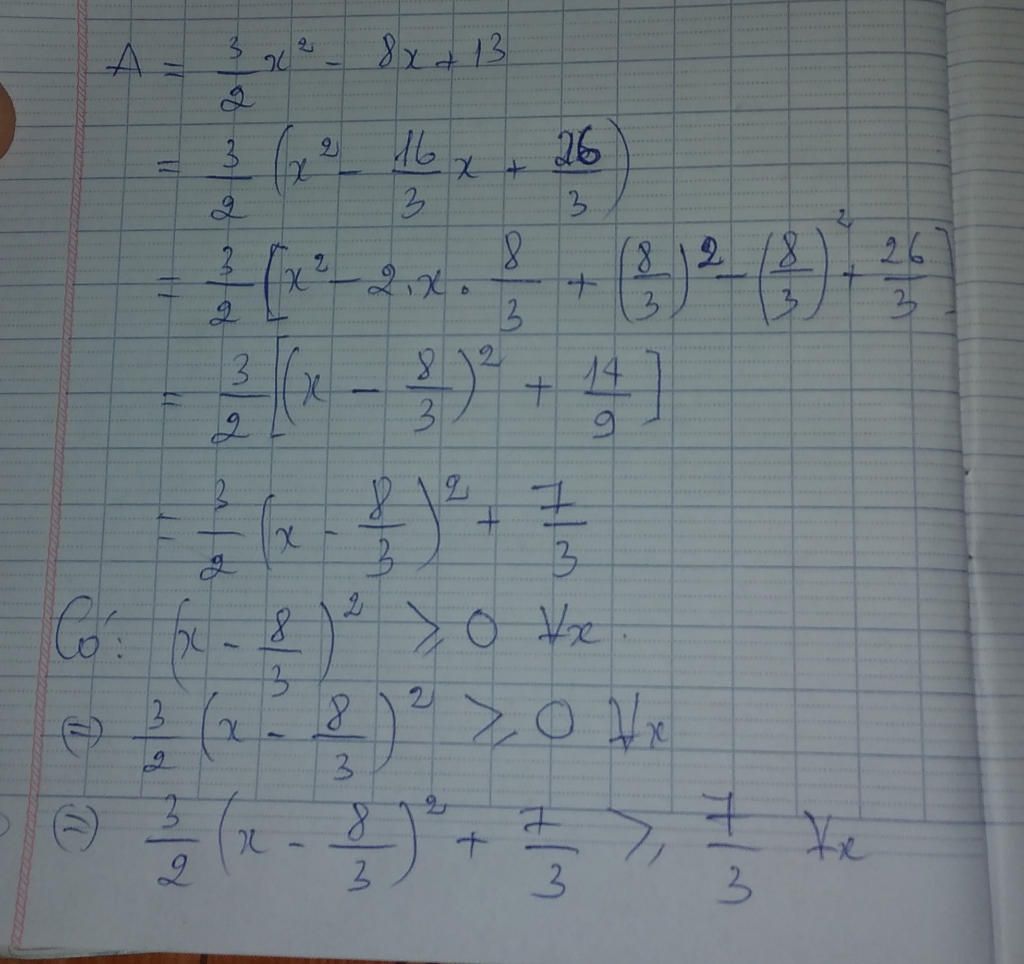 A = 3/2 x² - 8x + 13
= 3/2 (x² - 16/3 x + 26/3)
= 3/2 [x² - 2.x. 8/3 + (8/3)² - (8/3)² + 26/3]
= 3/2 [(x - 8/3)² + 14/9]
= 3/2 (x - 8/3)² + 7/3
Có: (x - 8/3)² ≥ 0 ∀x.
(=) 3/2 (x - 8/3)² ≥ 0 ∀x
(=) 3/2 (x - 8/3)² + 7/3 ≥ 7/3 ∀x